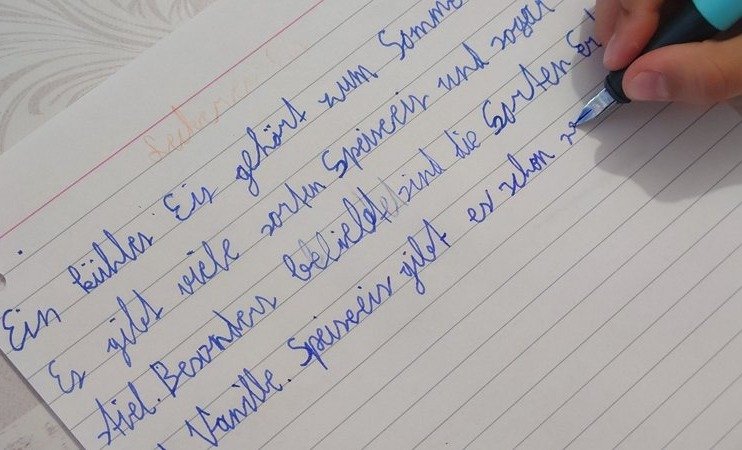 Ein kühles Eis gehört zum Somme
Es gibt viele sorten Speiseeis und sogar
Besonders beliebt sind die Sorten Er
Vanille. Speiseeis gibt es schon